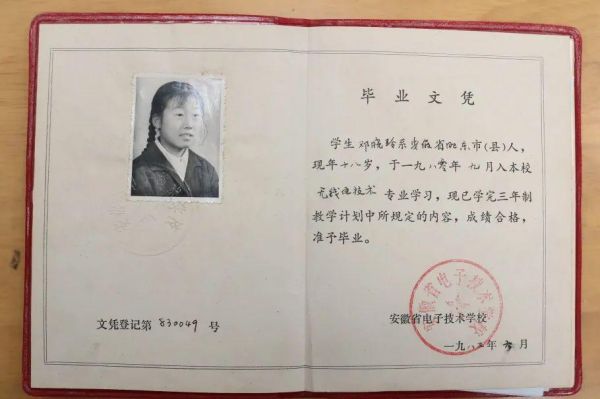 文凭登记第 830049 号
毕业文凭
学生 邓晓玲系安徽省肥东市(县)人，
现年十八岁，于一九八〇年 九月入本校
无线电技术 专业学习，现已学完三年制
教学计划中所规定的内容，成绩合格，
准予毕业。
安徽省电子技术学校
安徽省电子技术学校
一九八三年 月